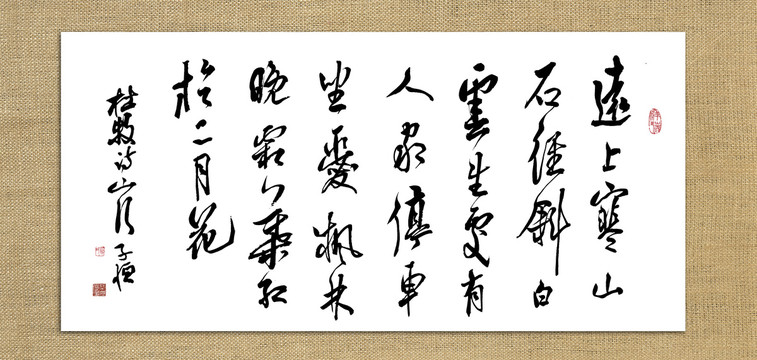 遠上寒山
石徑斜白
雲生處有
人家停車
坐愛楓林
晚霜葉紅
於二月花
杜牧詩山行 子恒